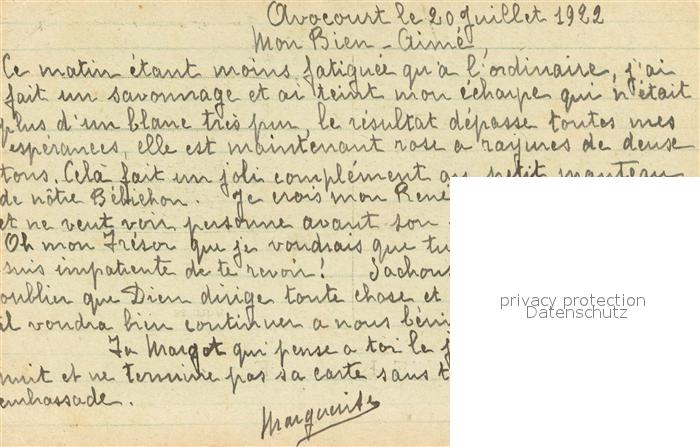 Avocourt le 20 Juillet 1922
Mon Bien-Aimé,
Ce matin étant moins fatiguée qu'à l'ordinaire, j'ai
fait un savonnage et ai teint mon écharpe qui n'était
plus d'un blanc très pur, le résultat dépasse toutes mes
espérances, elle est maintenant rose a rayures de deuse
tons. Celà fait un joli complément au petit manteau
de nôtre Bébichon. Je crois mon René
et ne veut voir personne avant son
Oh mon Trésor que je voudrais que tu
suis impatiente de te revoir! Sachons
oublier que Dieu dirige toute chose et
il voudra bien continuer a nous béni
Ta Margot qui pense a toi le j
nuit et ne termine pas sa carte sans t
embrassade.
Marguerite
privacy protection
Datenschutz